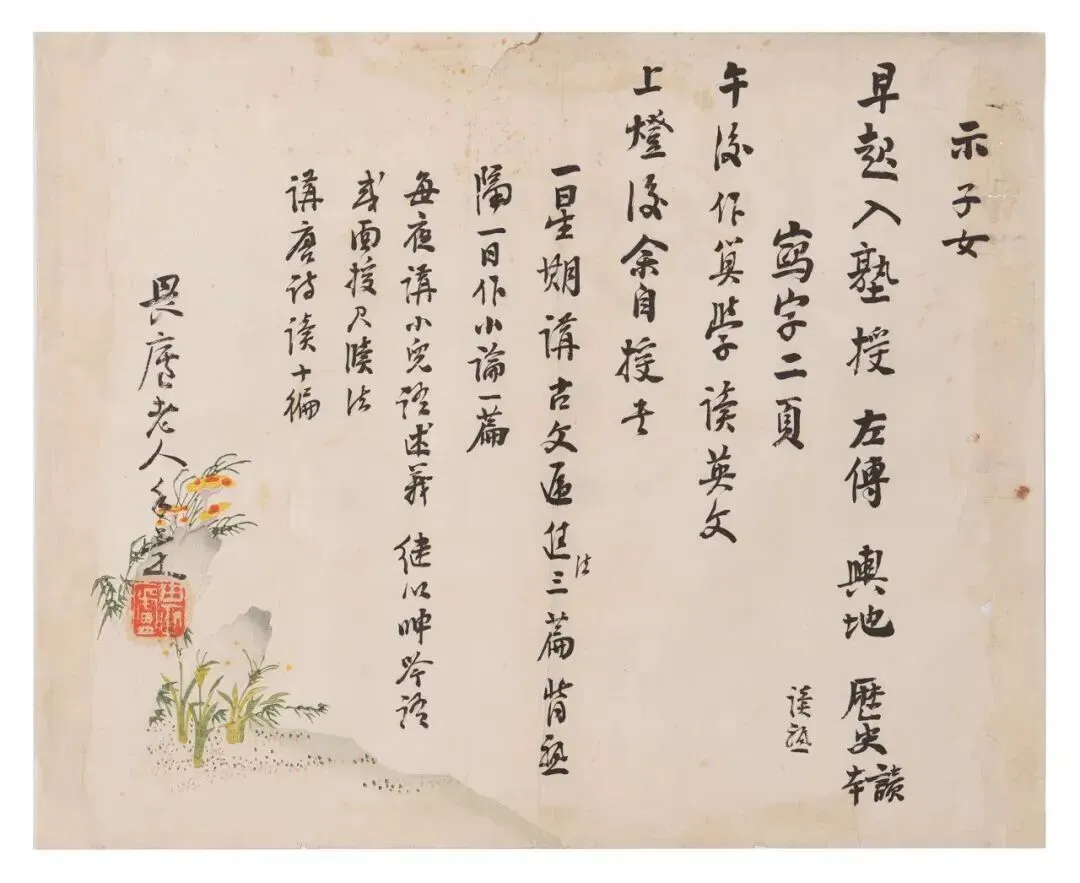 示子女
早起入塾授左傳 輿地 歷史讀本
寫字二頁 讀熟
午後作算學讀英文
上燈後余自授書
一星期講古文法三篇背熟
隔一日作小論一篇
每夜講小兒語述義 繼以呻吟語
或面授尺牘法
講唐詩讀十徧
畏廬老人手